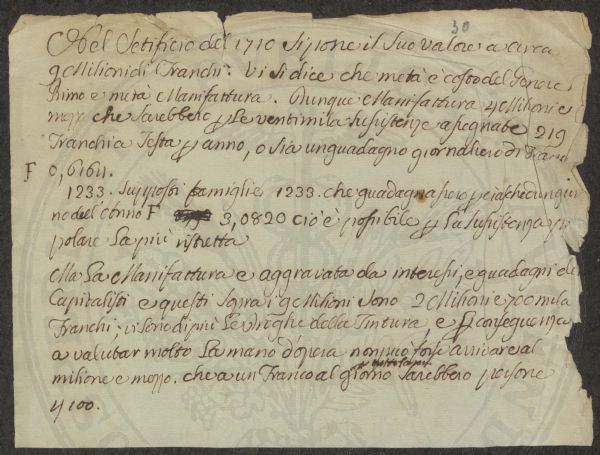 30
Nel Setificio del 1710 si pone il suo valore a circa
9 Milioni di Franchi. Vi si dice che metà è costo del Genere
primo e metà Manifattura. Dunque Manifattura 4 Milioni e
mezzo che sarebbero p le ventimila susistenze asegnate 219
Franchi a Testa p anno, o sia un guadagno giornaliero di Franc
F 0,6161.
1233. supposti famiglie 1233. che guadagnassero per ciaschedun gior
no del'anno F 3,0820 cio è possibile p la susistenza po
polare la più ristretta
Ma la Manifattura e aggravata da interessi, e guadagni de
Capitalisti e questi sopra i 9 Milioni sono 2 Milioni e 700 mila
Franchi; vi sono di più le droghe della Tintura, e p conseguenza
a valutar molto la mano d'opera non può forse arrivare al
milione e mezzo. che a un Franco al giorno sarebbero persone
4100.